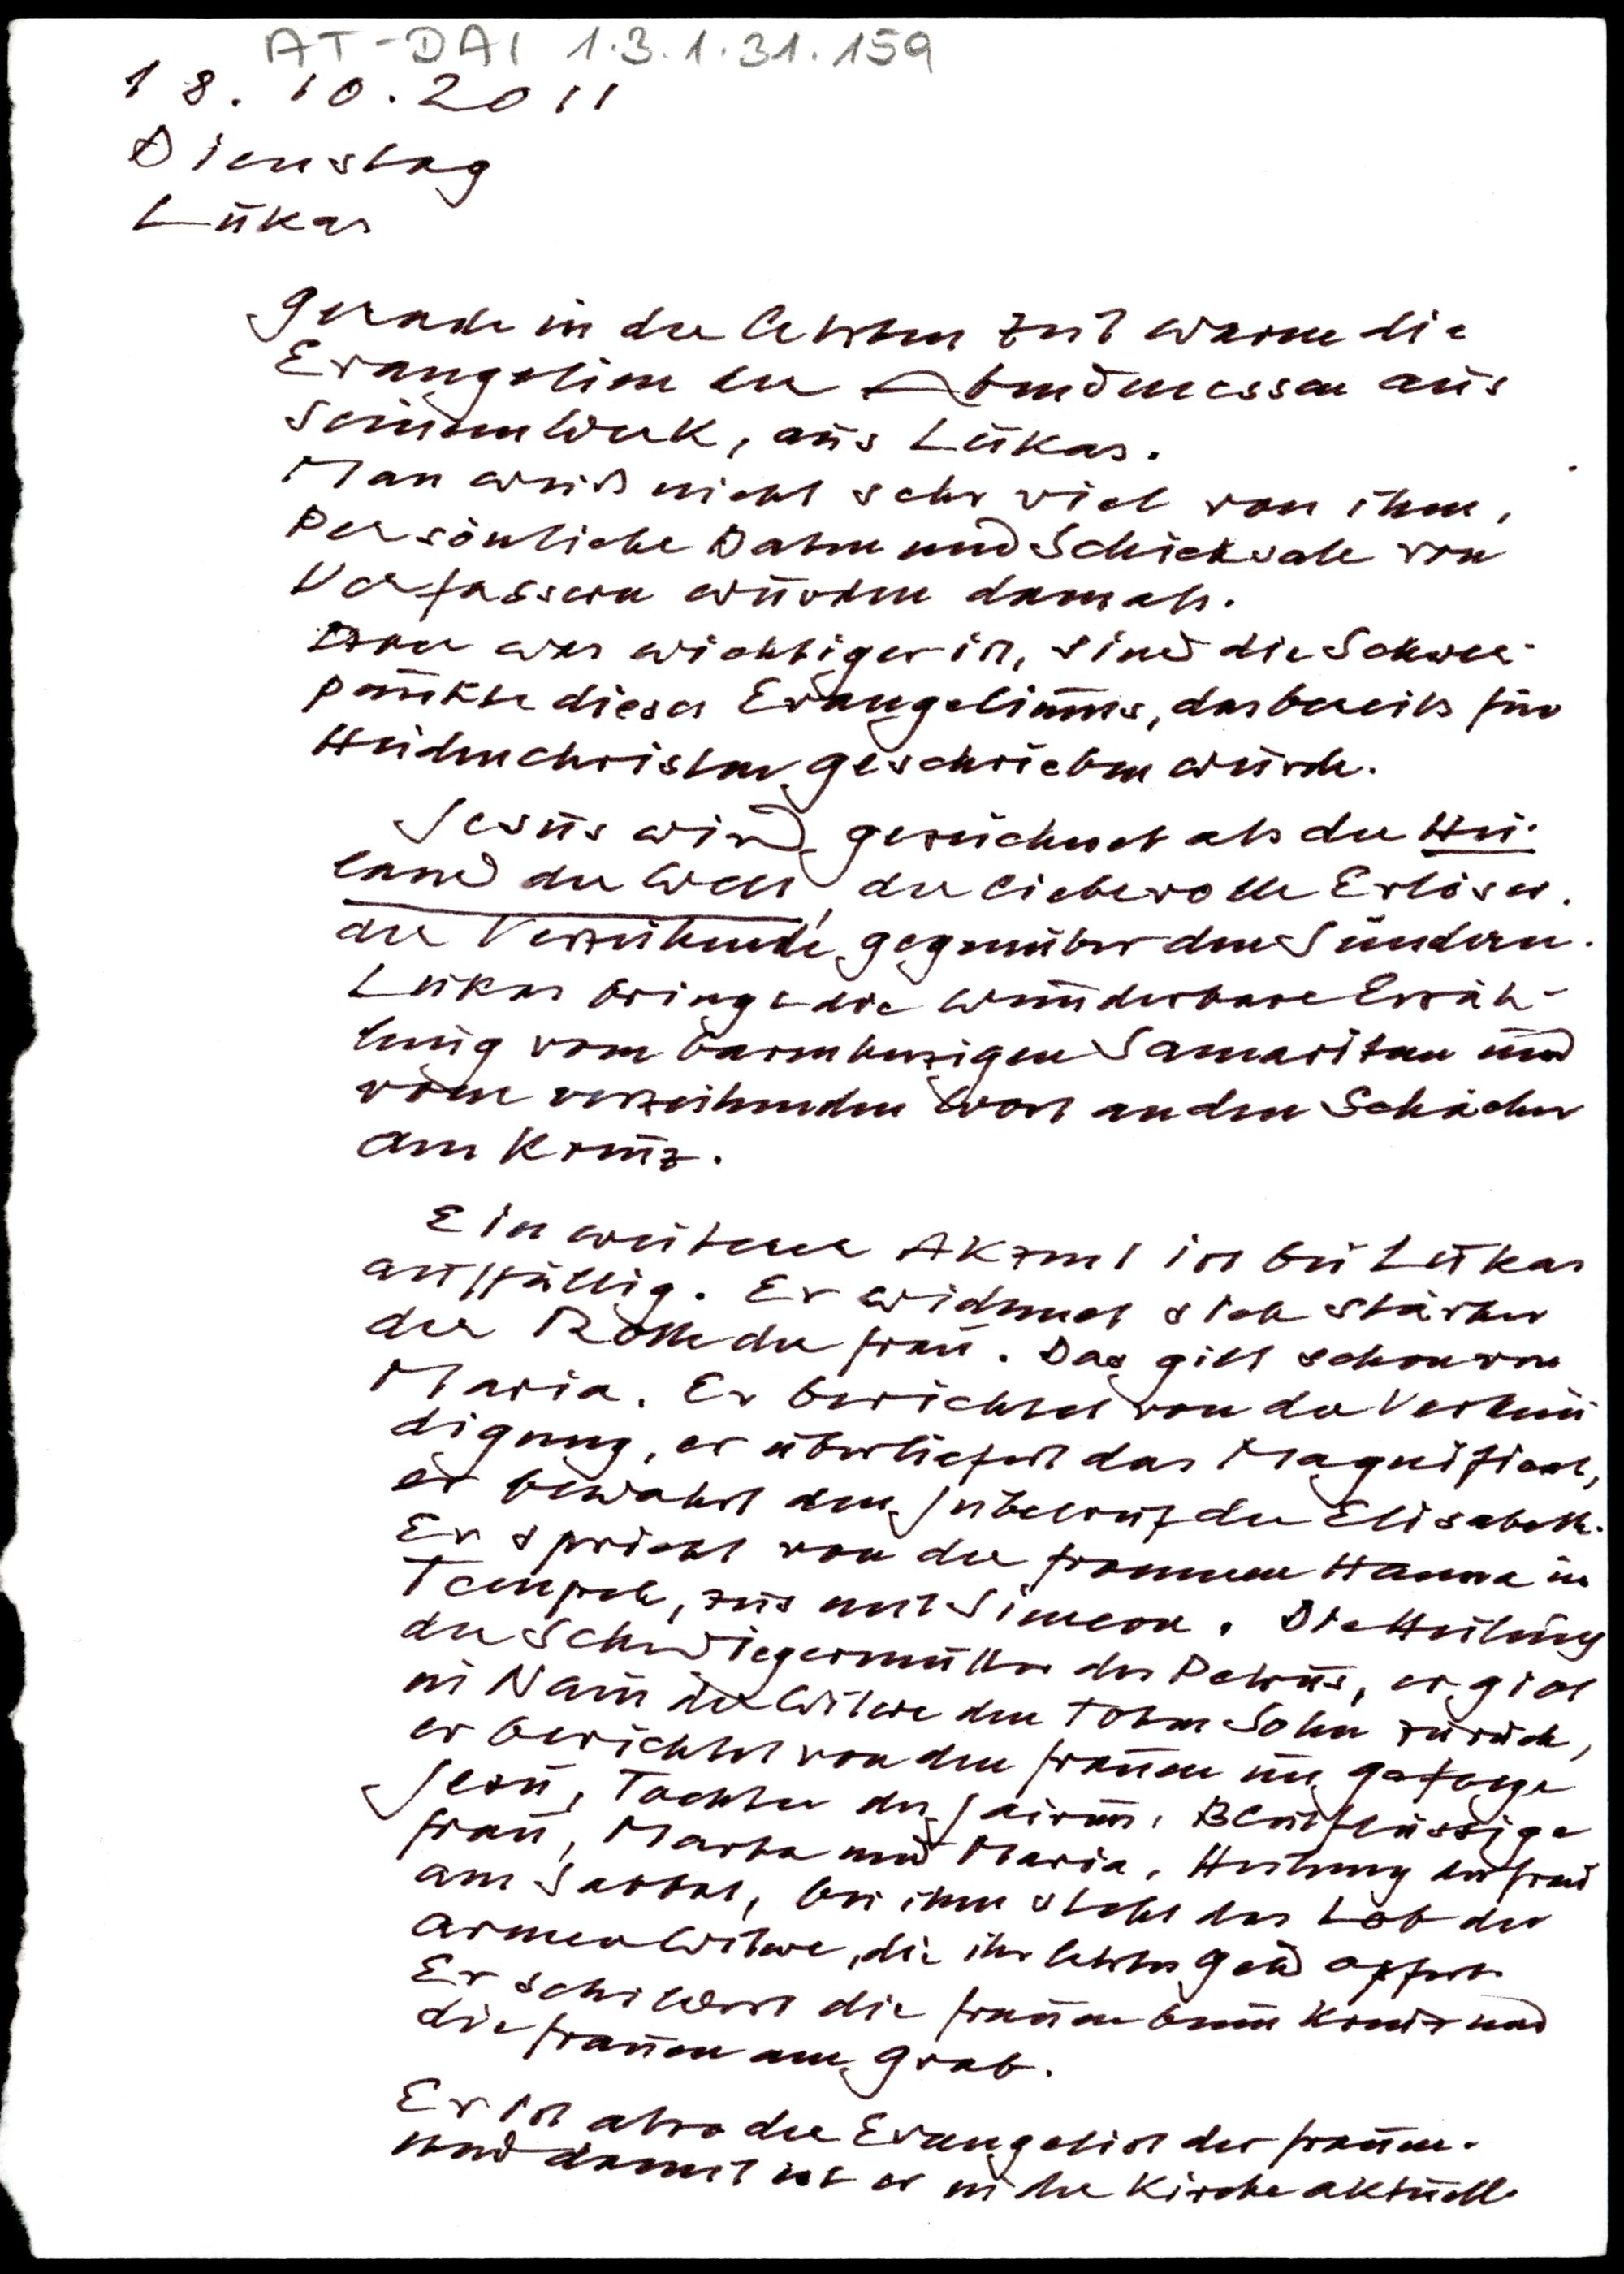 AT-DAI 1.3.1.31.159
18.10.2011
Dienstag
Lukas
Gerade in der letzten Zeit waren die
Evangelien der Abendmessen aus
seinem Werk, aus Lukas.
Man weiß nicht sehr viel von ihm,
Persönliche Daten und Schicksale von
Verfassern wurden damals.
Aber was wichtiger ist, sind die Schwer-
punkte dieses Evangeliums, das bereits für
Heidenchristen geschrieben wurde.
Jesus wird gezeichnet als der Hei-
land der Welt, der liebevolle Erlöser.
der Verzeihende gegenüber den Sündern.
Lukas bringt die wunderbare Erzäh-
lung vom barmherzigen Samaritan und
vom verzeihenden Wort an den Schächer
am Kreuz.
Ein weiterer Akzent ist bei Lukas
auffällig. Er widmet sich stärker
der Rolle der Frau. Das gilt schon von
Maria. Er berichtet von der Verkün
digung, er überliefert das Magnifikat,
er bewahrt den Jubelruf der Elisabeth.
Er spricht von der frommen Hanna im
Tempel, zus mit Simeon. Die Heilung
der Schwiegermutter des Petrus, er gibt
in Naim der Witwe den toten Sohn zurück,
er berichtet von den Frauen im Gefolge
Jesu, Tochter des Jairus, Blutflüssige
Frau, Marta und Maria, Heilung der Frau
am Sabbat, bei ihm steht das Lob der
armen Witwe, die ihr letztes Geld opfert.
Er schildert die Frauen beim Kreuz und
die Frauen am Grab.
Er ist also der Evangelist der Frauen.
und damit ist er in der Kirche aktuell.